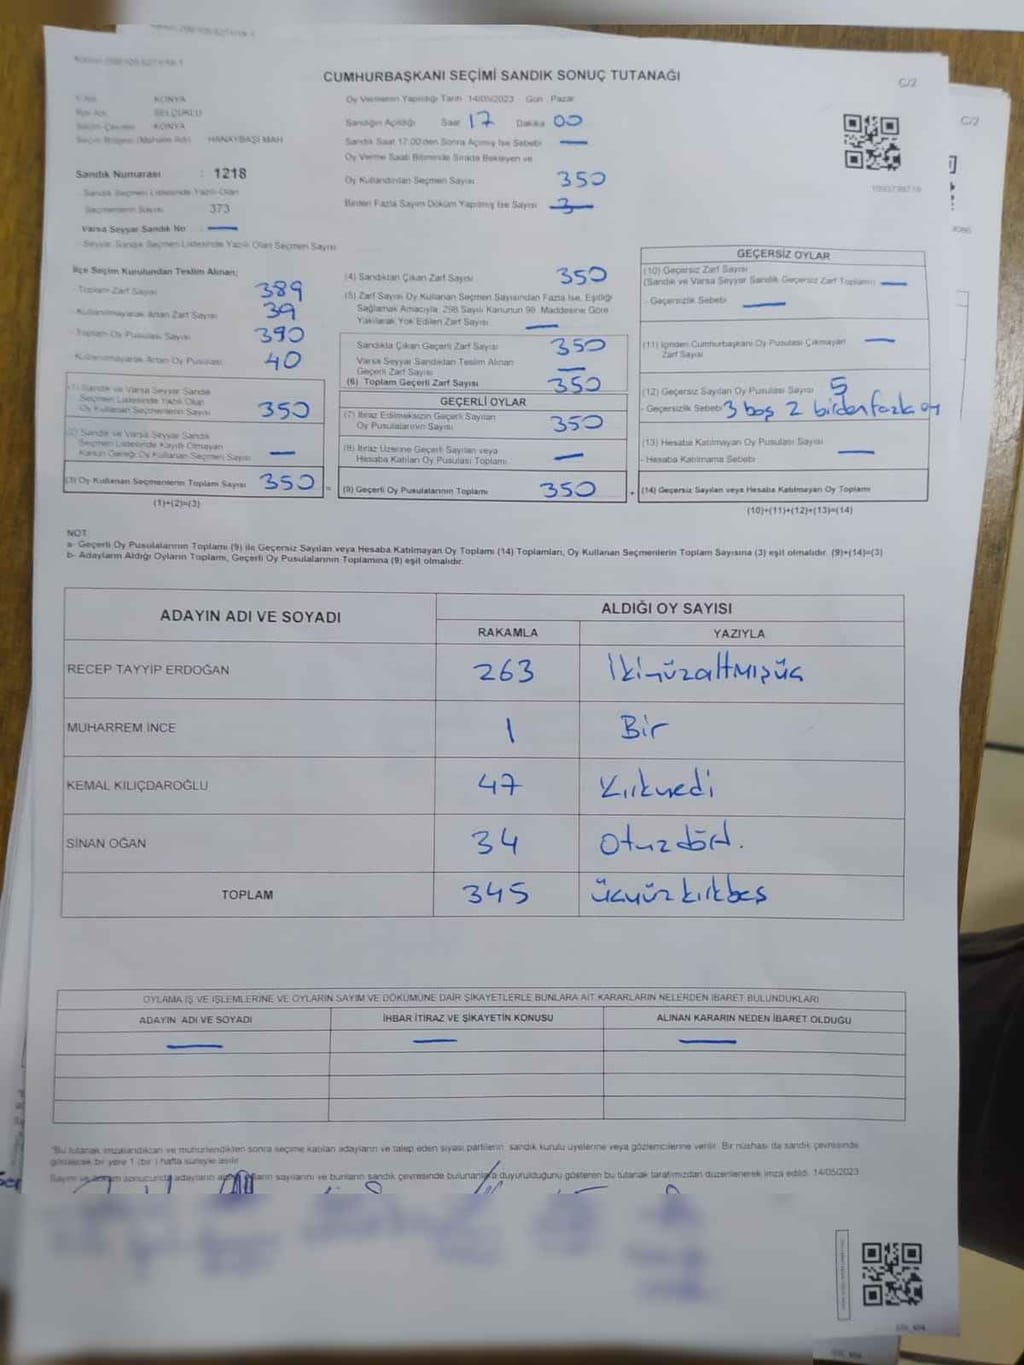 CUMHURBAŞKANI SEÇİMİ SANDIK SONUÇ TUTANAĞI
C/2
C/2
KONYA
SELÇUKLU
KONYA
HANAYBAŞI MAH
Sandık Numarası : 1218
Sandık Seçmen Listesinde Yazılı Olan
Seçmenlerin Sayısı 373
Varsa Seyyar Sandık No —
Seyyar Sandık Seçmen Listesinde Yazılı Olan Seçmen Sayısı
Oy Vermenin Yapıldığı Tarih 14/05/2023 Gün : Pazar
Sandığın Açıldığı Saat 17 Dakika 00
Sandık Saat 17.00'den Sonra Açılmış İse Sebebi —
Oy Verme Saati Bitiminde Sırada Bekleyen ve
Oy Kullandırılan Seçmen Sayısı 350
Birden Fazla Sayım Döküm Yapılmış İse Sayısı 3
İlçe Seçim Kurulundan Teslim Alınan;
- Toplam Zarf Sayısı 389
- Kullanılmayarak Artan Zarf Sayısı 39
- Toplam Oy Pusulası Sayısı 390
- Kullanılmayarak Artan Oy Pusulası 40
(1) Sandık ve Varsa Seyyar Sandık
Seçmen Listesinde Yazılı Olan
Oy Kullanan Seçmenlerin Sayısı 350
(2) Sandık ve Varsa Seyyar Sandık
Seçmen Listesinde Kayıtlı Olmayan
Kanun Gereği Oy Kullanan Seçmen Sayısı —
(3) Oy Kullanan Seçmenlerin Toplam Sayısı 350 =
(1)+(2)=(3)
(4) Sandıktan Çıkan Zarf Sayısı 350
(5) Zarf Sayısı Oy Kullanan Seçmen Sayısından Fazla İse, Eşitliği
Sağlamak Amacıyla, 298 Sayılı Kanunun 98. Maddesine Göre
Yakılarak Yok Edilen Zarf Sayısı —
Sandıkta Çıkan Geçerli Zarf Sayısı 350
Varsa Seyyar Sandıktan Teslim Alınan
Geçerli Zarf Sayısı —
(6) Toplam Geçerli Zarf Sayısı 350
GEÇERLİ OYLAR
(7) İtiraz Edilmeksizin Geçerli Sayılan
Oy Pusulalarının Sayısı 350
(8) İtiraz Üzerine Geçerli Sayılan veya
Hesaba Katılan Oy Pusulası Toplamı —
(9) Geçerli Oy Pusulalarının Toplamı 350 +
GEÇERSİZ OYLAR
(10) Geçersiz Zarf Sayısı
(Sandık ve Varsa Seyyar Sandık Geçersiz Zarf Toplamı) —
- Geçersizlik Sebebi —
(11) İçinden Cumhurbaşkanı Oy Pusulası Çıkmayan —
Zarf Sayısı
(12) Geçersiz Sayılan Oy Pusulası Sayısı 5
- Geçersizlik Sebebi 3 boş 2 birden fazla oy
(13) Hesaba Katılmayan Oy Pusulası Sayısı
- Hesaba Katılmama Sebebi —
(14) Geçersiz Sayılan veya Hesaba Katılmayan Oy Toplamı
(10)+(11)+(12)+(13)=(14)
NOT:
a- Geçerli Oy Pusulalarının Toplamı (9) ile Geçersiz Sayılan veya Hesaba Katılmayan Oy Toplamı (14) Toplamları, Oy Kullanan Seçmenlerin Toplam Sayısına (3) eşit olmalıdır. (9)+(14)=(3)
b- Adayların Aldığı Oyların Toplamı, Geçerli Oy Pusulalarının Toplamına (9) eşit olmalıdır.
ADAYIN ADI VE SOYADI ALDIĞI OY SAYISI
RAKAMLA YAZIYLA
RECEP TAYYİP ERDOĞAN 263 İkiyüzaltmışüç
MUHARREM İNCE 1 Bir
KEMAL KILIÇDAROĞLU 47 Kırkyedi
SİNAN OĞAN 34 Otuzdört.
TOPLAM 345 üçyüzkırkbeş
OYLAMA İŞ VE İŞLEMLERİNE VE OYLARIN SAYIM VE DÖKÜMÜNE DAİR ŞİKAYETLERLE BUNLARA AİT KARARLARIN NELERDEN İBARET BULUNDUKLARI
ADAYIN ADI VE SOYADI İHBAR İTİRAZ VE ŞİKAYETİN KONUSU ALINAN KARARIN NEDEN İBARET OLDUĞU
— — —
*Bu tutanak imzalandıktan ve mühürlendikten sonra seçime katılan adayların ve talep eden siyasi partilerin, sandık kurulu üyelerine veya gözlemcilerine verilir. Bir nüshası da sandık çevresinde
görülecek bir yere 1 (bir) hafta süreyle asılır.
Sayım ve döküm sonucunda adayların sayılarını ve bunların sandık çevresinde bulunanlara duyurulduğunu gösteren bu tutanak tarafımızdan düzenlenerek imza edildi. 14/05/2023